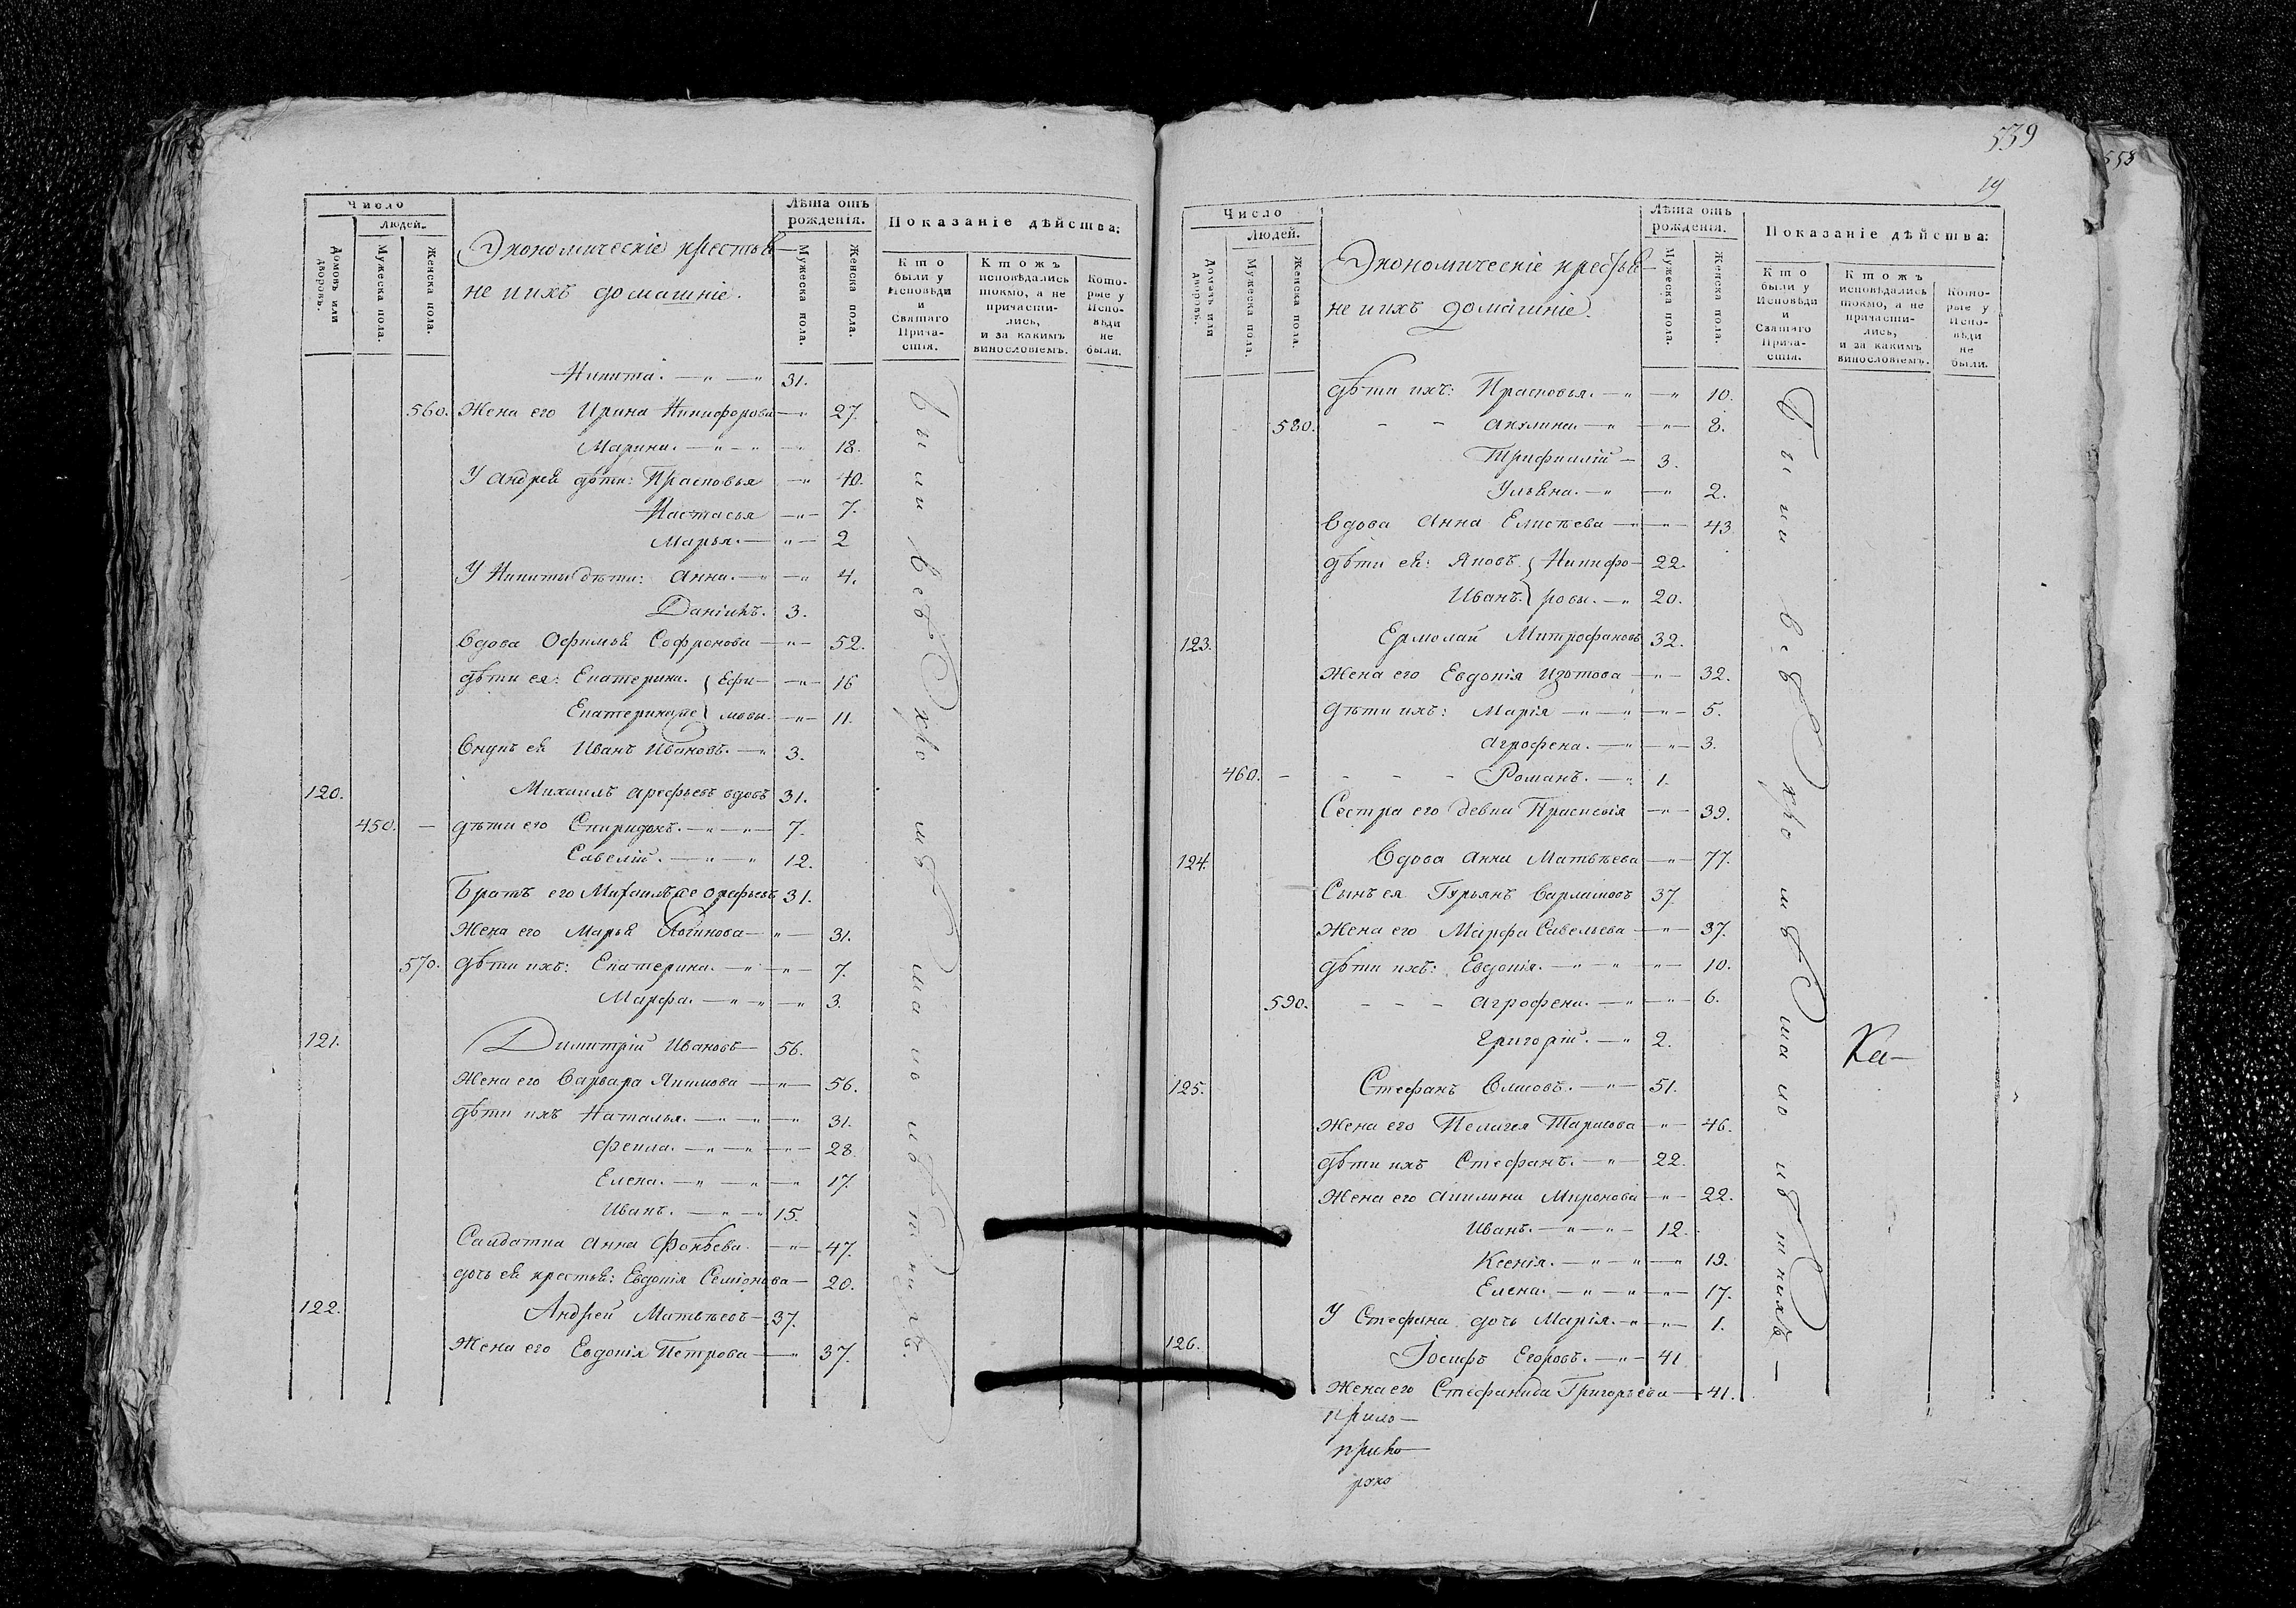 Число
Людей.
Домовъ или дворовъ.
Мужеска пола.
Женска пола.
Экономическіе крестья-
не и ихъ домашніе.
Лѣта отъ рожденія.
Мужеска пола.
Женска пола.
Показаніе дѣйства:
Кто были у Исповѣди и Святаго Прича-стія.
Ктожъ исповѣдались токмо, а не причасти-лись, и за какимъ винословіемъ.
Кото-рые у Испо-вѣди не были.
Никита. 31.
560. Жена его Ирина Никифорова 27.
Марина. 18.
У Андрея дѣти: Прасковья 10.
Настасья 7.
Марья. 2
У Никиты дѣти: Анна. 4.
Даніилъ. 3.
Вдова Офимья Софронова 52.
дѣти ея: Екатерина. Ефи- 16
Екатерина же мовы. 11.
Внукъ ея Иванъ Ивановъ. 3.
120. Михаилъ Арефьевъ вдовъ 31.
450. дѣти его Спиридонъ. 7.
Савелій. 12.
Братъ его Михаилъ же Орефьевъ 31.
Жена его Марья Логинова 31.
570. дѣти ихъ: Екатерина. 7.
Марфа. 3.
121. Димитрій Ивановъ 56.
Жена его Варвара Якимова 56.
дѣти ихъ Наталья. 31.
Фекла. 28.
Елена. 17.
Иванъ. 15.
Салдатка Анна Фокѣева. 47.
дочь ея крестья: Евдокія Семіонова 20.
122. Андрей Матвѣевъ 37.
Жена его Евдокія Петрова 37.
539
19
Число
Людей.
Домовъ или дворовъ.
Мужеска пола.
Женска пола.
Экономическіе крестья-
не и ихъ домашніе.
Лѣта отъ рожденія.
Мужеска пола.
Женска пола.
Показаніе дѣйства:
Кто были у Исповѣди и Святаго Прича-стія.
Ктожъ исповѣдались токмо, а не причасти-лись, и за какимъ винословіемъ.
Кото-рые у Испо-вѣди не были.
дѣти ихъ: Прасковья. 10.
580. Акулина. 8.
Трифиллій 3.
Ульяна. 2.
Вдова Анна Елисѣева 43
дѣти ея: Яковъ. Никифо- 22.
Иванъ. ровы. 20.
123. Ермолай Митрофановъ 32.
Жена его Евдокія Изотова 32.
дѣти ихъ: Марія 5.
Агрофена. 3.
460. Романъ. 1.
Сестра его девка 39.
124. Вдова Анна Матвѣева 77.
Сынъ ея Гурьянъ 37.
Жена его Марфа Савельева 37.
дѣти ихъ: Евдокія. 10.
590. Агрофена. 6.
Григорій. 2.
Ка-
125. Стефанъ 51.
Жена его Пелагея Тарасова 46.
дѣти ихъ Стефанъ. 22.
Жена его Акилина Миронова 22.
Иванъ. 12.
Ксенія. 19.
Елена. 17.
У Стефана дочь Марія. 1.
126. Іосифъ Егоровъ. 41
Жена его Стефанида Григорьева 41.